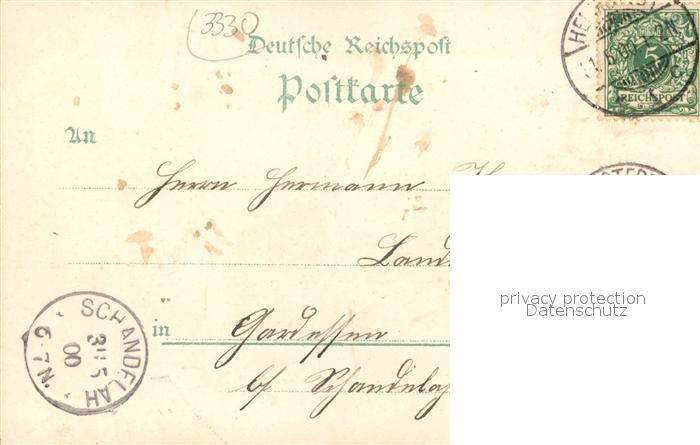 3330
Deutsche Reichspost
Postkarte
5
REICHSPOST
An
Herrn Hermann
Land
in Gardessen
b/ Schandelah
SCHANDELAH
31 5
00
6-7 N.
privacy protection
Datenschutz